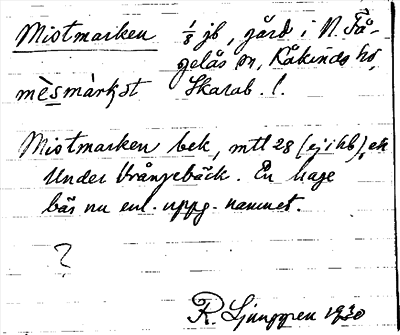 Miotmarken 1/8 jb, gård i N. Få-
gelås sn, Kåkinds hd,
mèsmàrkst Skarab. l.
Miotmarken bek, mtl 28 (ej i hb), ek
Under Vrångebäck. En hage
bär nu enl. uppg. namnet.
?
R. Ljunggren 1930